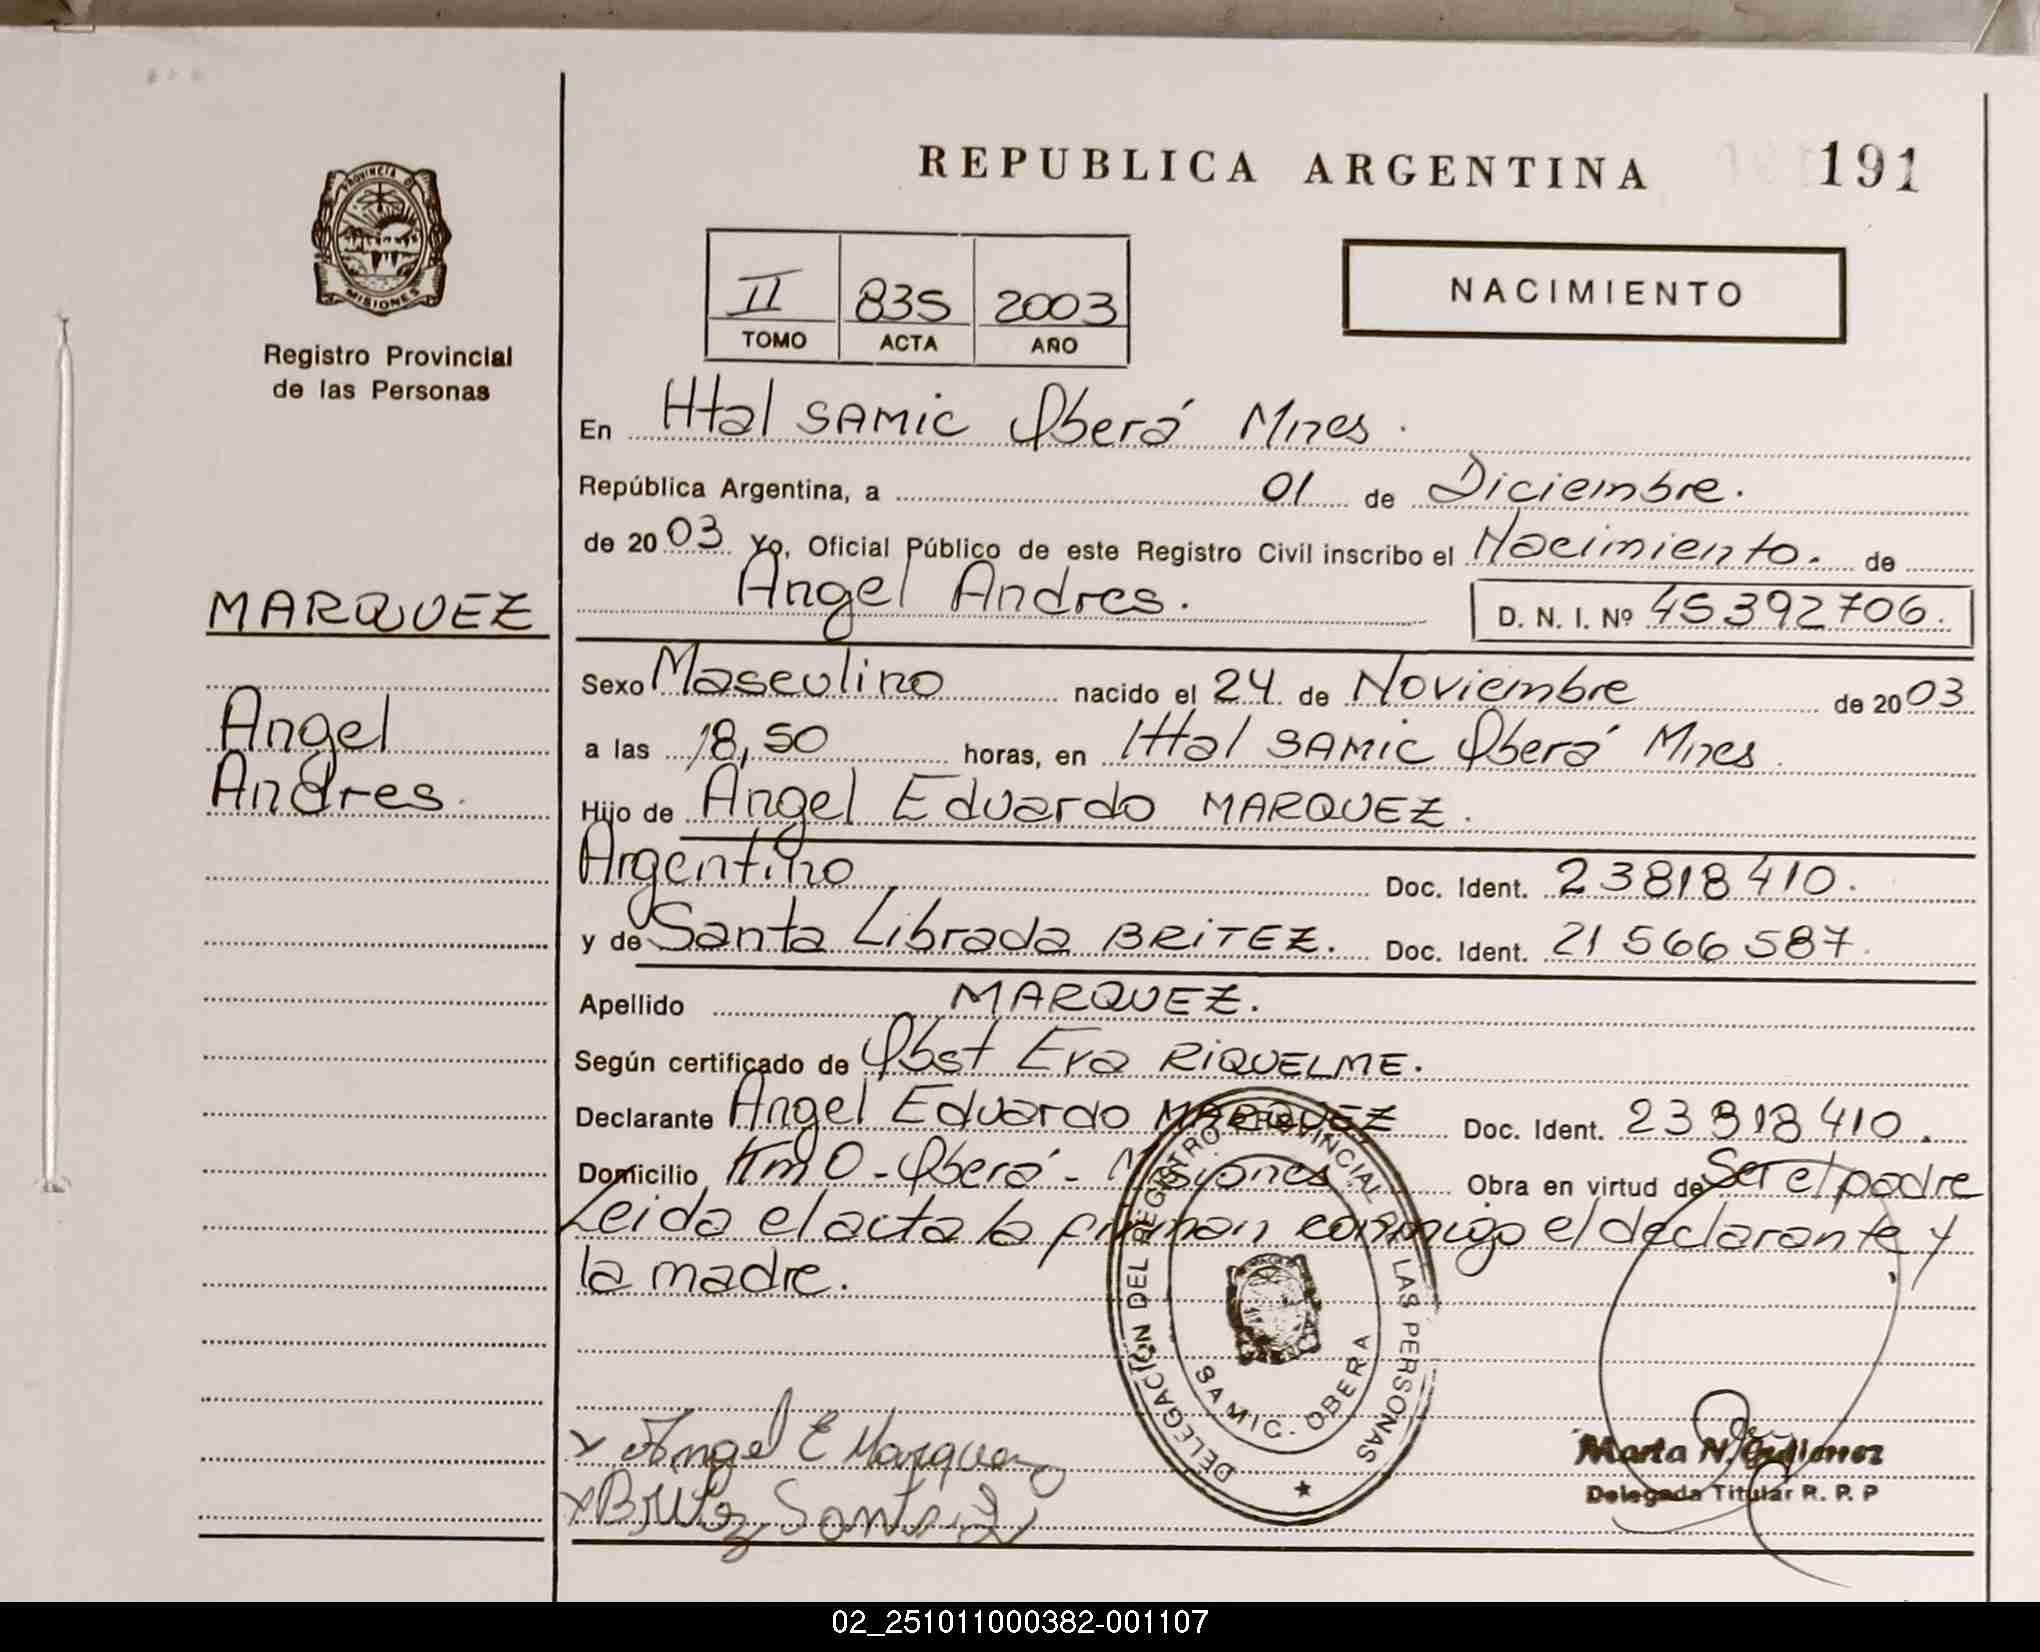 REPUBLICA ARGENTINA 191
PROVINCIA DE
MISIONES
Registro Provincial
de las Personas
II 835 2003
TOMO ACTA AÑO
NACIMIENTO
En Htal SAMIC Oberá Mnes.
República Argentina, a 01 de Diciembre.
de 2003 Yo, Oficial Público de este Registro Civil inscribo el Nacimiento. de
Angel Andres. D. N. I. Nº 45392706.
MARQUEZ
Angel
Andres.
Sexo Masculino nacido el 24 de Noviembre de 2003
a las 18,50 horas, en Htal SAMIC Oberá Mnes.
Hijo de Angel Eduardo MARQUEZ.
Argentino Doc. Ident. 23818410.
y de Santa Librada BRITEZ. Doc. Ident. 21566587.
Apellido MARQUEZ.
Según certificado de Obst Eva RIQUELME.
Declarante Angel Eduardo MARQUEZ Doc. Ident. 23818410.
Domicilio Km 0 - Oberá - Misiones Obra en virtud de Ser el padre
Leida el acta la firman conmigo el declarante y
la madre.
DELEGACIÓN DEL REGISTRO PROVINCIAL DE LAS PERSONAS
SAMIC. OBERA
x Angel E Marquez
x Britez Santa L
Marta N. Gutierrez
Delegada Titular R. P. P
02_251011000382-001107